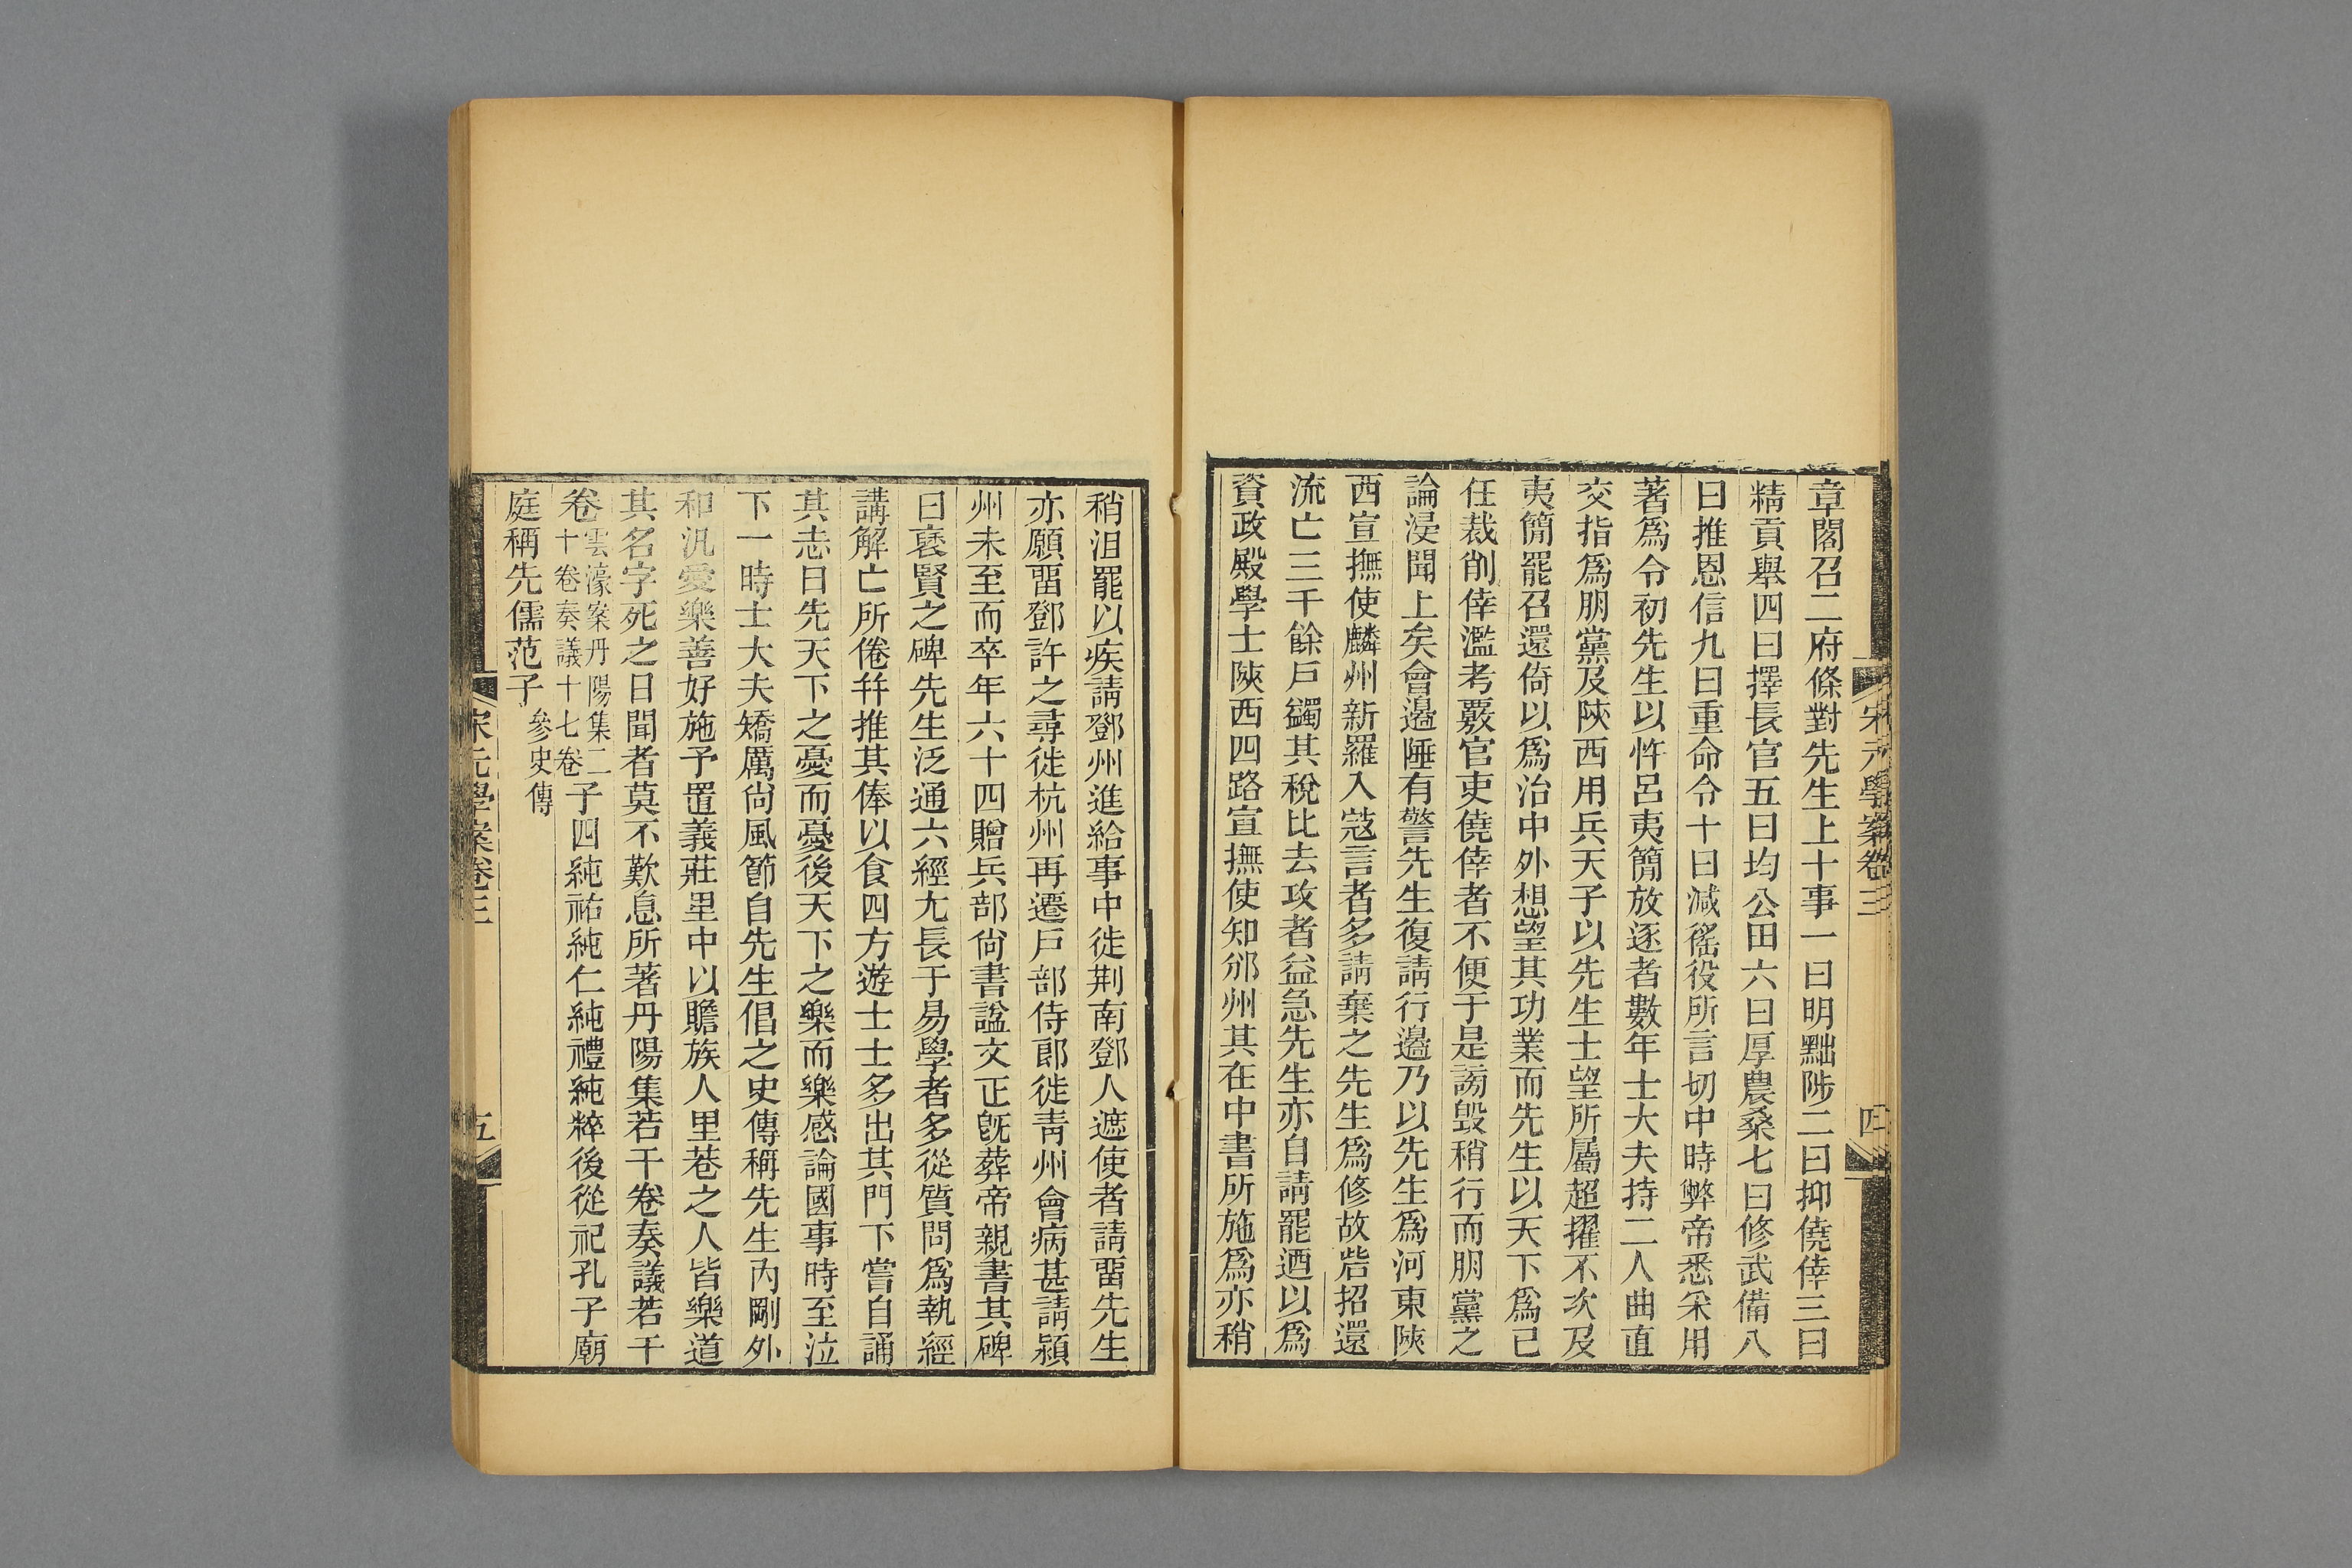 宋元學案卷三
四
章閣召二府條對先生上十事一曰明黜陟二曰抑僥倖三曰
精貢舉四曰擇長官五曰均公田六曰厚農桑七曰修武備八
曰推恩信九曰重命令十曰減徭役所言切中時弊帝悉采用
著爲令初先生以忤呂夷簡放逐者數年士大夫持二人曲直
交指爲朋黨及陝西用兵天子以先生士望所屬超擢不次及
夷簡罷召還倚以爲治中外想望其功業而先生以天下爲己
任裁削倖濫考覈官吏僥倖者不便于是謗毀稍行而朋黨之
論浸聞上矣會邊陲有警先生復請行邊乃以先生爲河東陝
西宣撫使麟州新羅入寇言者多請棄之先生爲修故砦招還
流亡三千餘戶蠲其稅比去攻者益急先生亦自請罷迺以爲
資政殿學士陝西四路宣撫使知邠州其在中書所施爲亦稍
稍沮罷以疾請鄧州進給事中徙荆南鄧人遮使者請畱先生
亦願畱鄧許之尋徙杭州再遷戶部侍郎徙青州會病甚請潁
州未至而卒年六十四贈兵部尙書諡文正旣葬帝親書其碑
曰褒賢之碑先生泛通六經尤長于易學者多從質問爲執經
講解亡所倦幷推其俸以食四方遊士士多出其門下嘗自誦
其志曰先天下之憂而憂後天下之樂而樂感論國事時至泣
下一時士大夫矯厲尙風節自先生倡之史傳稱先生內剛外
和汎愛樂善好施予置義莊里中以贍族人里巷之人皆樂道
其名字死之日聞者莫不歎息所著丹陽集若干卷奏議若干
卷雲濠案丹陽集二十卷奏議十七卷子四純祐純仁純禮純粹後從祀孔子廟
庭稱先儒范子參史傳
宋元學案卷三
五